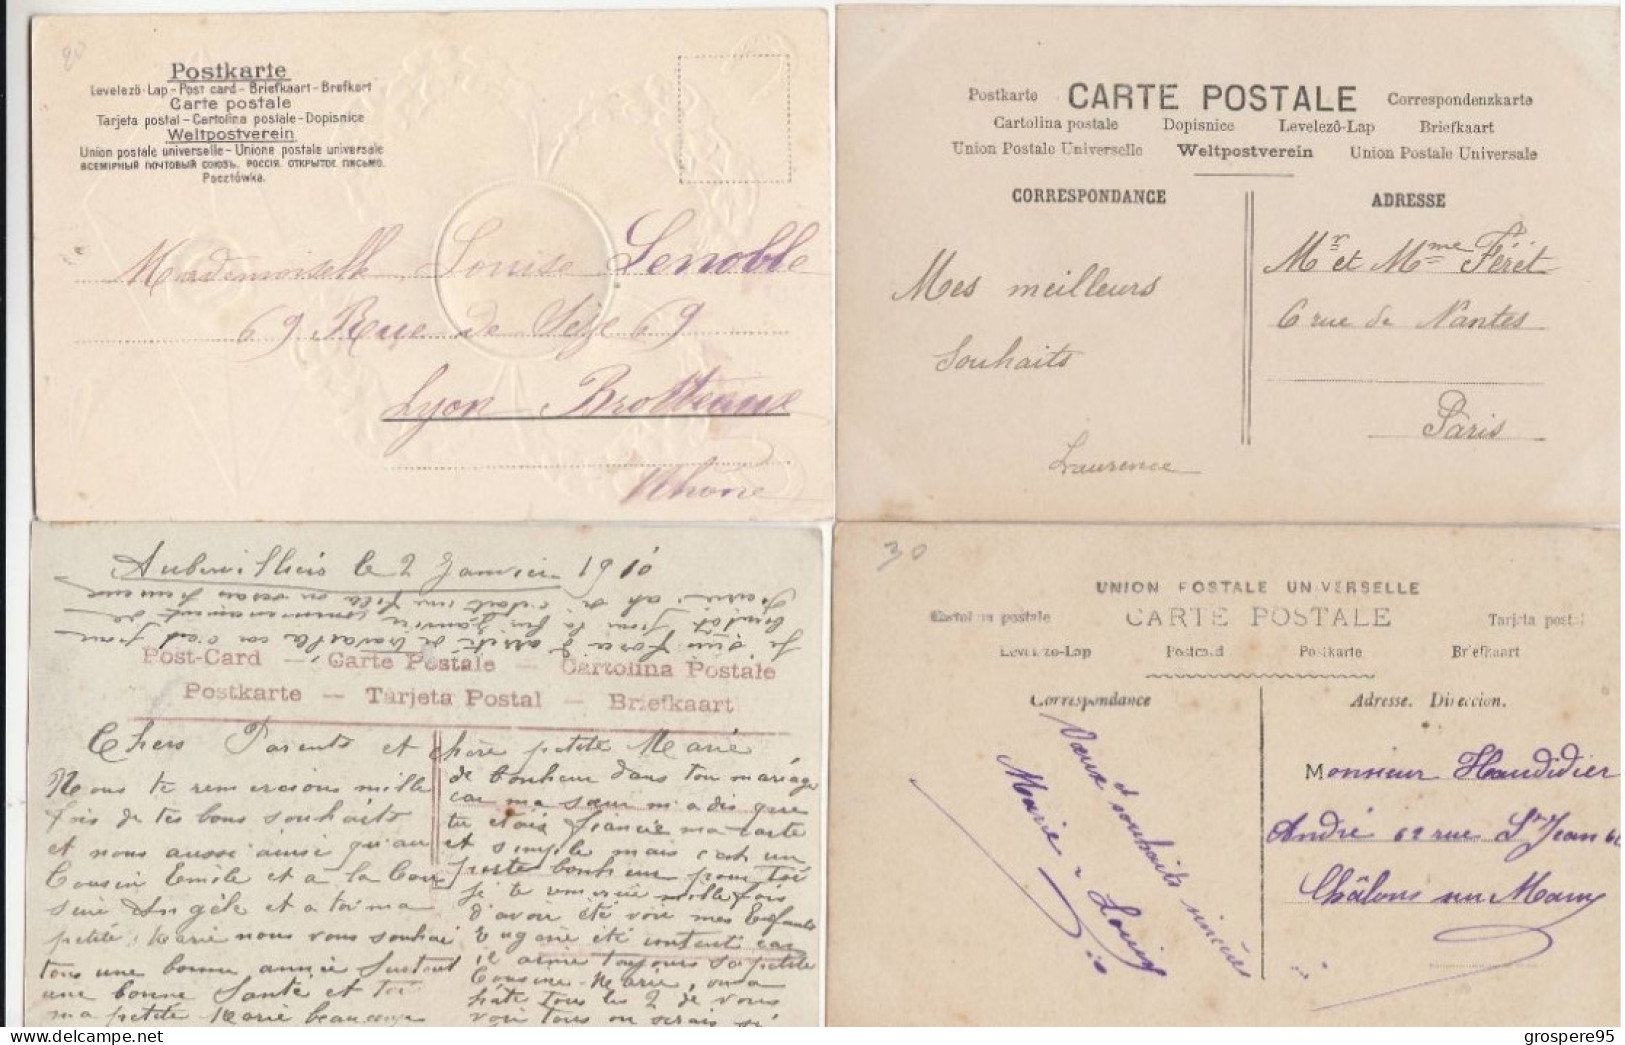 20
Postkarte
Levelező-Lap - Post card - Briefkaart - Brefkort
Carte postale
Tarjeta postal - Cartolina postale - Dopisnice
Weltpostverein
Union postale universelle - Unione postale universale
ВСЕМІРНЫЙ ПОЧТОВЫЙ СОЮЗЪ. РОССІЯ. ОТКРЫТОЕ ПИСЬМО.
Pocztówka.
Mademoiselle Louise Lenoble
69 Rue de Sèze 69
Lyon Brotteaux
Rhône
Postkarte CARTE POSTALE Correspondenzkarte
Cartolina postale Dopisnice Levelezô-Lap Briefkaart
Union Postale Universelle Weltpostverein Union Postale Universale
CORRESPONDANCE
ADRESSE
Mes meilleurs
souhaits
Laurence
Mr et Mme Férét
6 rue de Nantes
Paris
Aubervilliers le 2 Janvier 1910
Post-Card — Carte Postale — Cartolina Postale
Postkarte — Tarjeta Postal — Briefkaart
Chers Parents et chère petite Marie
Nous te remercions mille
fois de tes bons souhaits
et nous aussi ainsi qu'au
Cousin Emile et a la Cou
sine Angèle et a toi ma
petite Marie nous vous souhai
tons une bonne année surtout
une bonne Santé et toi
ma petite Marie beaucoup
de bonheur dans ton mariage
car ma sœur m'a dis que
tu etais fiancée ma carte
et simple mais c'est un
porte bonheur pour toi
je te remercie mille fois
d'avoir été voir mes Enfants
Eugénie été contente car
il aime toujours sa petite
Cousine Marie, on a
hâte tous les 2 de vous
voir tous on serais si
30
UNION POSTALE UNIVERSELLE
Cartolina postale CARTE POSTALE Tarjeta postal
Levelezo-Lap Postcard Postkarte Briefkaart
Correspondance
Adresse. Direccion.
Vœux & souhaits sincères
Marie - Louise
Monsieur Haudidier
André 62 rue St Jean 62
Châlons sur Marne
grospere95